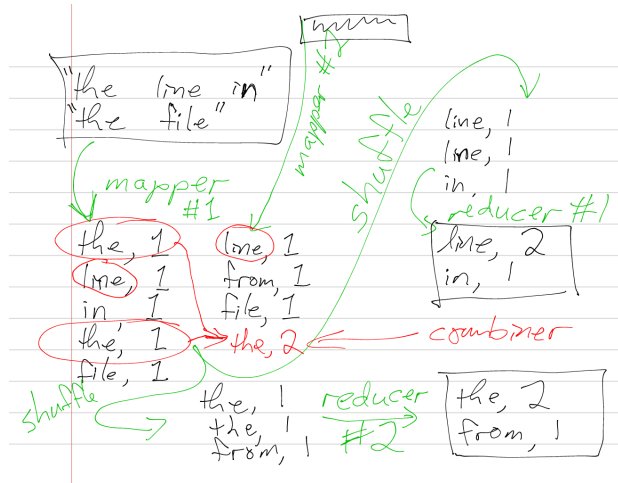 "the line in"
"the file"
mapper #2
mapper
#1
the, 1
line, 1
in, 1
the, 1
file, 1
line, 1
from, 1
file, 1
the, 2
combiner
shuffle
line, 1
line, 1
in, 1
reducer #1
line, 2
in, 1
shuffle
the, 1
the, 1
from, 1
reducer
#2
the, 2
from, 1